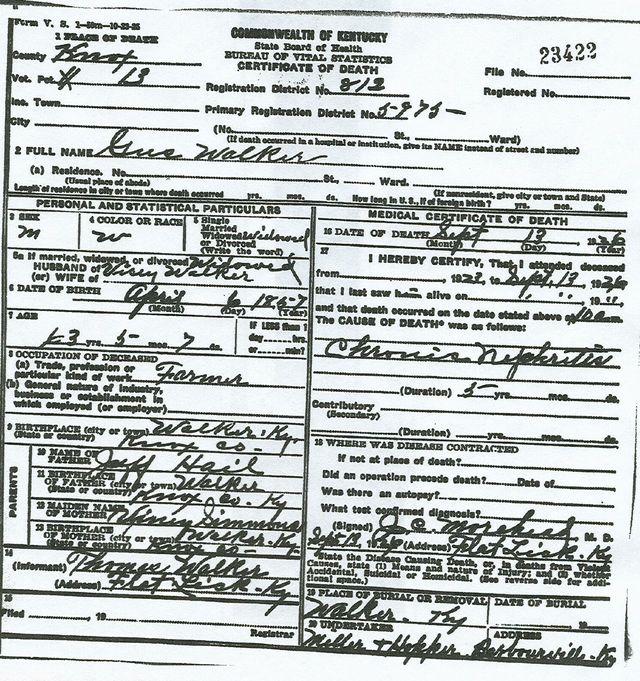 Form V. S. 1-50m-10-23-25
COMMONWEALTH OF KENTUCKY
State Board of Health
BUREAU OF VITAL STATISTICS
CERTIFICATE OF DEATH
1 PLACE OF DEATH
County Knox
Vot. Pct. # 13
Inc. Town
City
File No. 23422
Registered No.
Registration District No. 812
Primary Registration District No. 5975-
(No. St., Ward)
(If death occurred in a hospital or institution, give its NAME instead of street and number)
2 FULL NAME Gus Walker
(a) Residence. No. St., Ward.
(Usual place of abode) (If nonresident, give city or town and State)
Length of residence in city or town where death occurred yrs. mos. ds. How long in U. S., if of foreign birth? yrs. mos. ds.
PERSONAL AND STATISTICAL PARTICULARS
3 SEX
m
4 COLOR OR RACE
w
5 Single
Married
Widowed
or Divorced
(Write the word)
Widowed
5a If married, widowed, or divorced Widowed
HUSBAND of
(or) WIFE of
Walker
6 DATE OF BIRTH April 6 1857
(Month) (Day) (Year)
7 AGE
yrs. 5 mos. 7 ds.
IF LESS than 1
day hrs.
or min.?
8 OCCUPATION OF DECEASED
(a) Trade, profession or
particular kind of work Farmer
(b) General nature of industry,
business or establishment in
which employed (or employer)
9 BIRTHPLACE (city or town) Walker. Ky
(State or country) Knox co-
PARENTS
10 NAME OF
FATHER Jeff Hail
11 BIRTHPLACE
OF FATHER (city or town) Walker
(State or country) Knox Co. Ky
12 MAIDEN NAME
OF MOTHER Simmons
13 BIRTHPLACE
OF MOTHER (city or town) Walker. Ky.
(State or country) Knox co-
14
(Informant) Thomas Walker
(Address) Flat Lick. Ky
15
Filed , 19
Registrar
MEDICAL CERTIFICATE OF DEATH
16 DATE OF DEATH Sept 13 1926
(Month) (Day) (Year)
17
I HEREBY CERTIFY, That I attended deceased
from , 1923, to Sept. 13, 1926
that I last saw him alive on " " " 19
and that death occurred on the date stated above at
The CAUSE OF DEATH* was as follows:
Chronic Nephritis
(Duration) 5 yrs. mos. ds.
Contributory
(Secondary)
(Duration) yrs. mos. ds.
18 WHERE WAS DISEASE CONTRACTED
If not at place of death?
Did an operation precede death? Date of
Was there an autopsy?
What test confirmed diagnosis?
(Signed) J. C. M. D.
Sept 13, 19 (Address) Flat Lick. Ky
State the Disease Causing Death, or, in deaths from Violent
Causes, state (1) Means and nature of Injury; and (2) whether
Accidental, Suicidal or Homicidal. (See reverse side for addi-
tional space.)
19 PLACE OF BURIAL OR REMOVAL
Walker. Ky
DATE OF BURIAL
19
20 UNDERTAKER
Miller & Hopper
ADDRESS
Barbourville. Ky